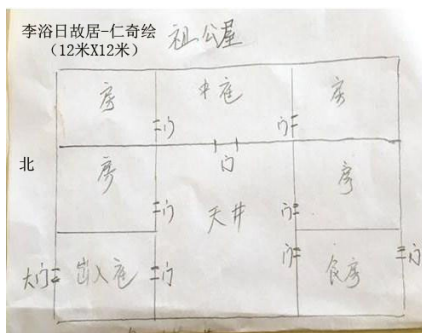 李浴日故居-仁奇绘
(12米X12米)
祖公屋
房
中庭
房
门
门
北
房
门
房
门
天井
门
大门
出入庭
门
门
食房
门